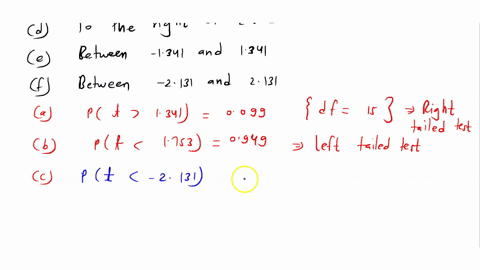 (d) To the right
(e) Between -1.341 and 1.341
(f) Between -2.131 and 2.131
(a) P( t > 1.341) = 0.099 { df = 15 } ⇒ Right tailed test
(b) P( t < 1.753) = 0.949 ⇒ left tailed test
(c) P( t < -2.131)